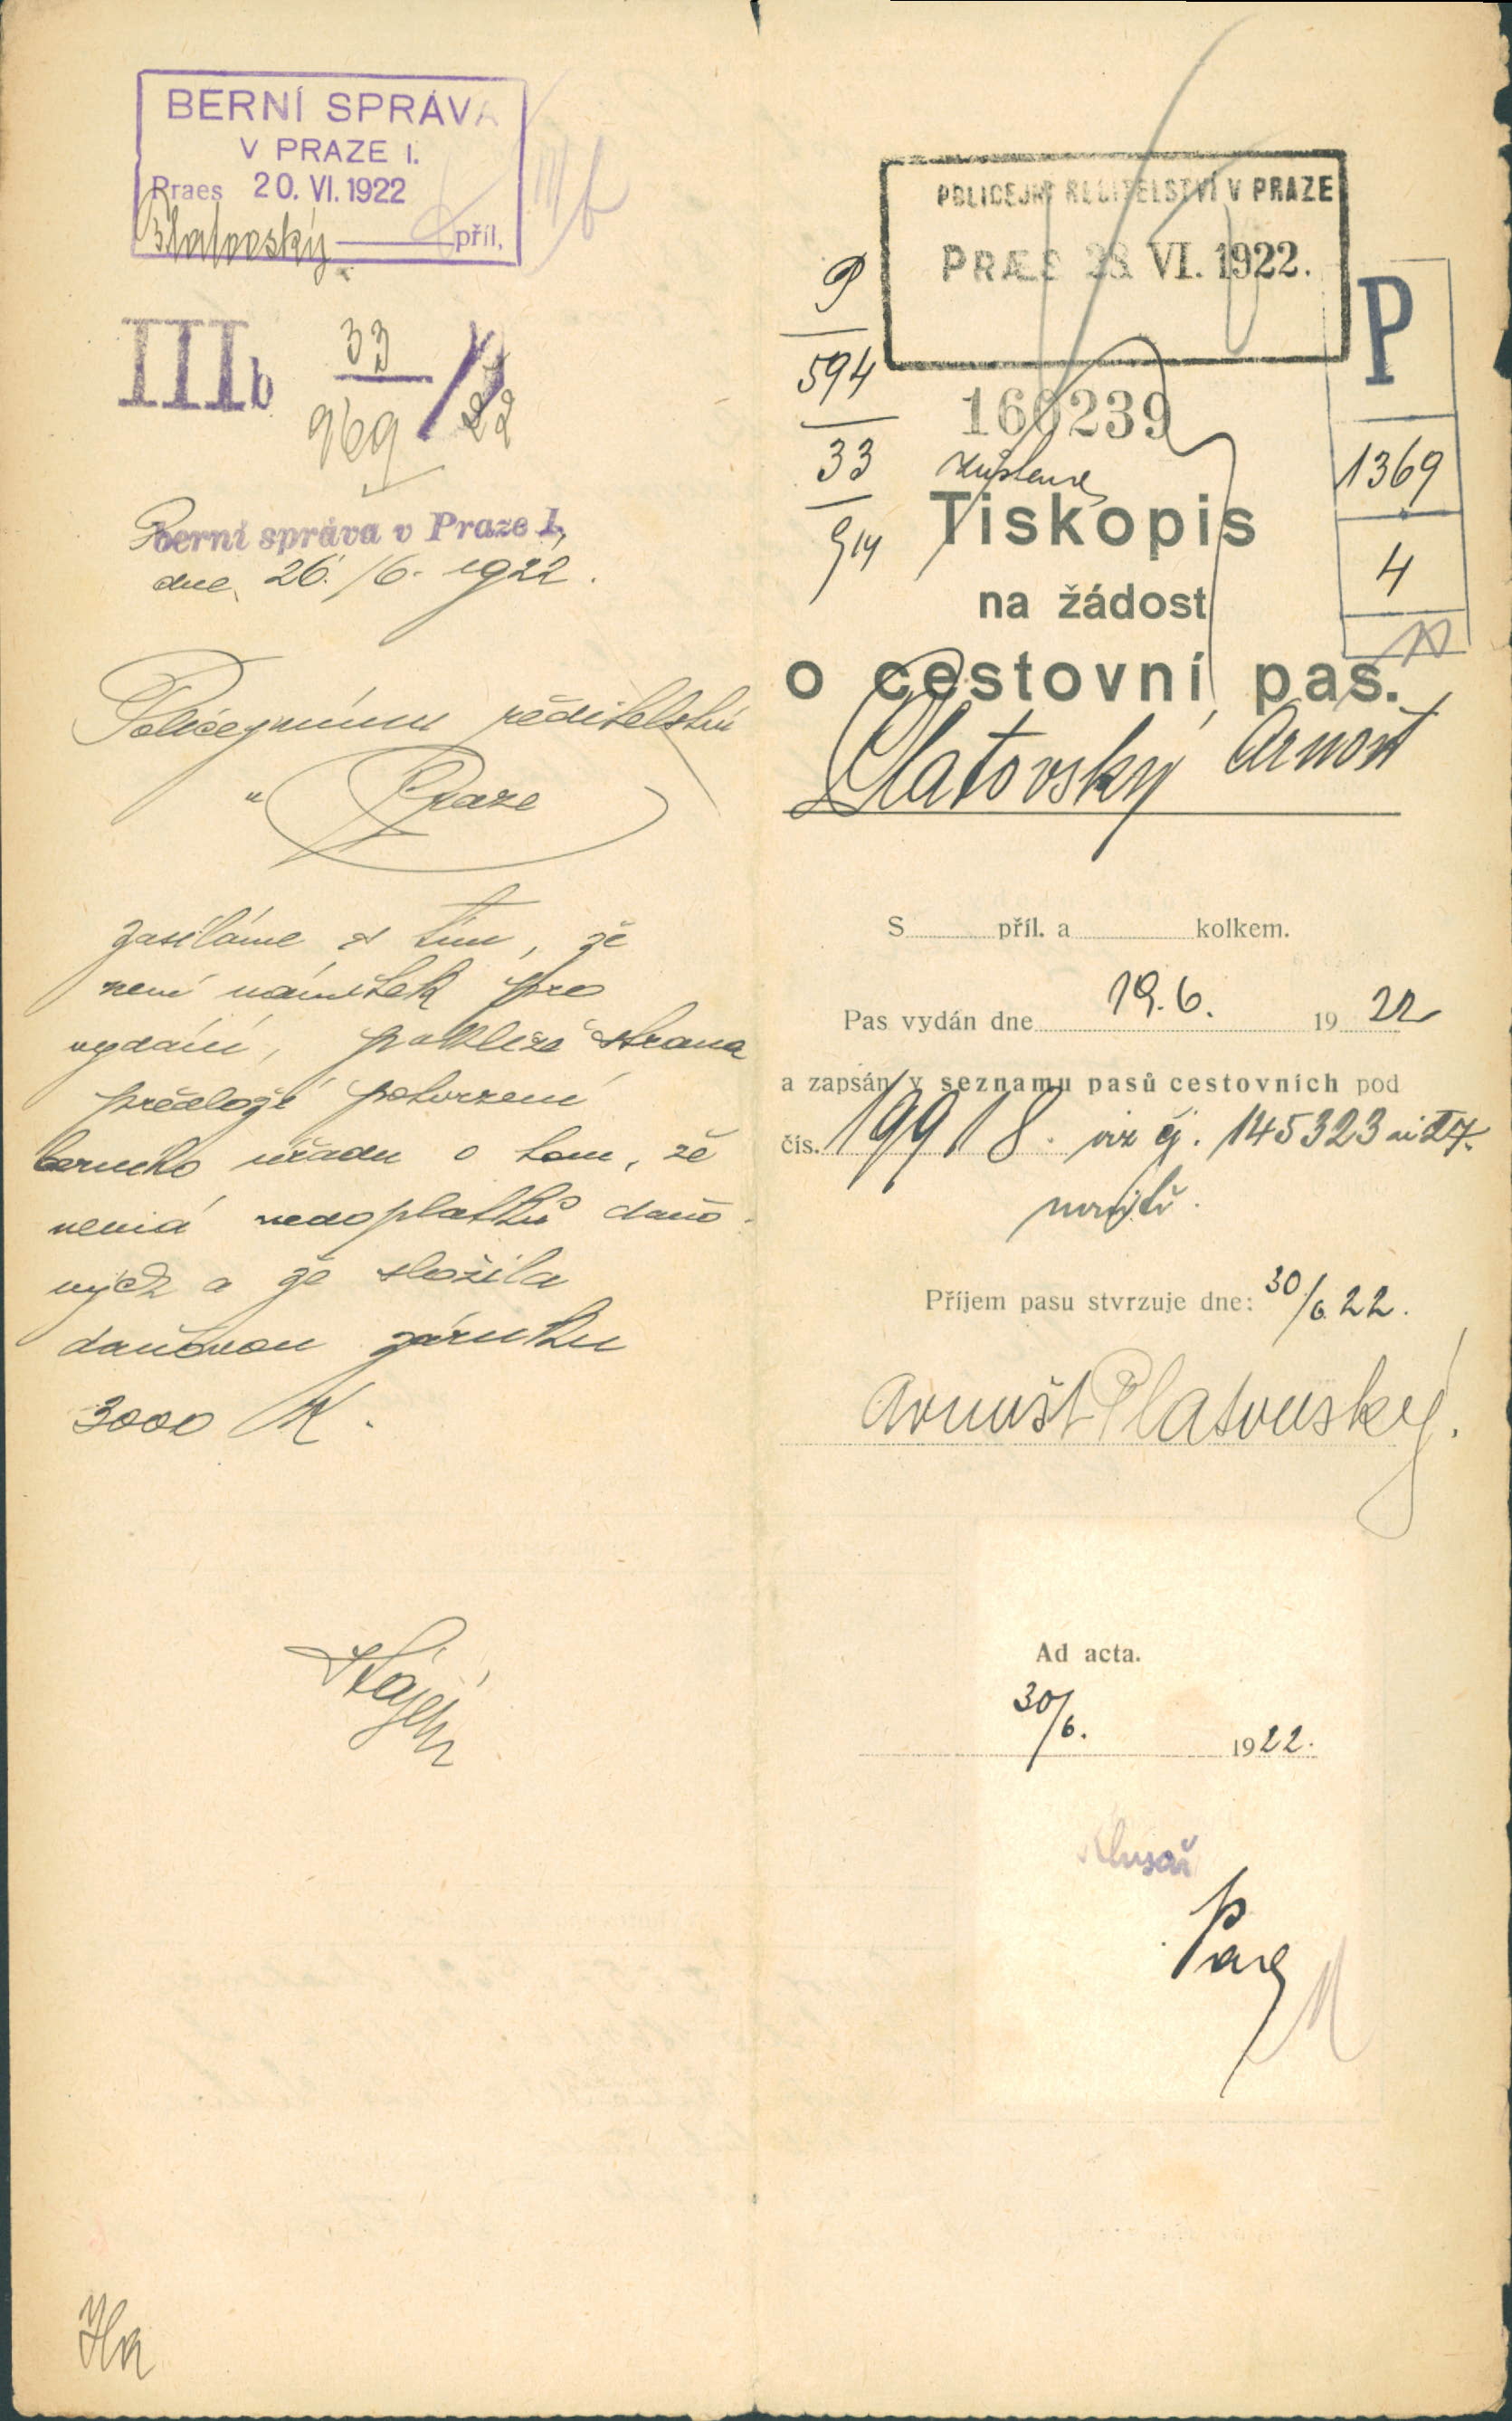 BERNÍ SPRÁVA
V PRAZE I.
Praes 20. VI. 1922
příl,
IIIb 33/969 /22
Berní správa v Praze I,
dne 26./6. 1922.
Policejnímu ředitelství
v Praze
zasíláme s tím, že
není námitek pro
vydání, pakliže strana
předloží potvrzení
berního úřadu o tom, že
nemá nedoplatků daňo-
vých a že složila
daňovou záruku
3000 K.
POLICEJNÍ ŘEDITELSTVÍ V PRAZE
PRÆS 28. VI. 1922.
P
594
33
914
160239
P
1369
4
Tiskopis
na žádost
o cestovní pas.
Platovský Arnošt
S příl. a kolkem.
Pas vydán dne 19. 6. 1922
a zapsán v seznamu pasů cestovních pod
čís. 19918. viz čj. 145323
Příjem pasu stvrzuje dne: 30/6 22.
Arnošt Platovský.
Ad acta.
30/6. 1922.